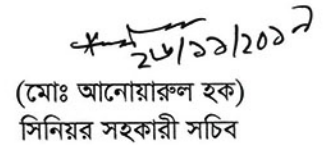 ২৬/১১/২০১৭
(মোঃ আনোয়ারুল হক)
সিনিয়র সহকারী সচিব